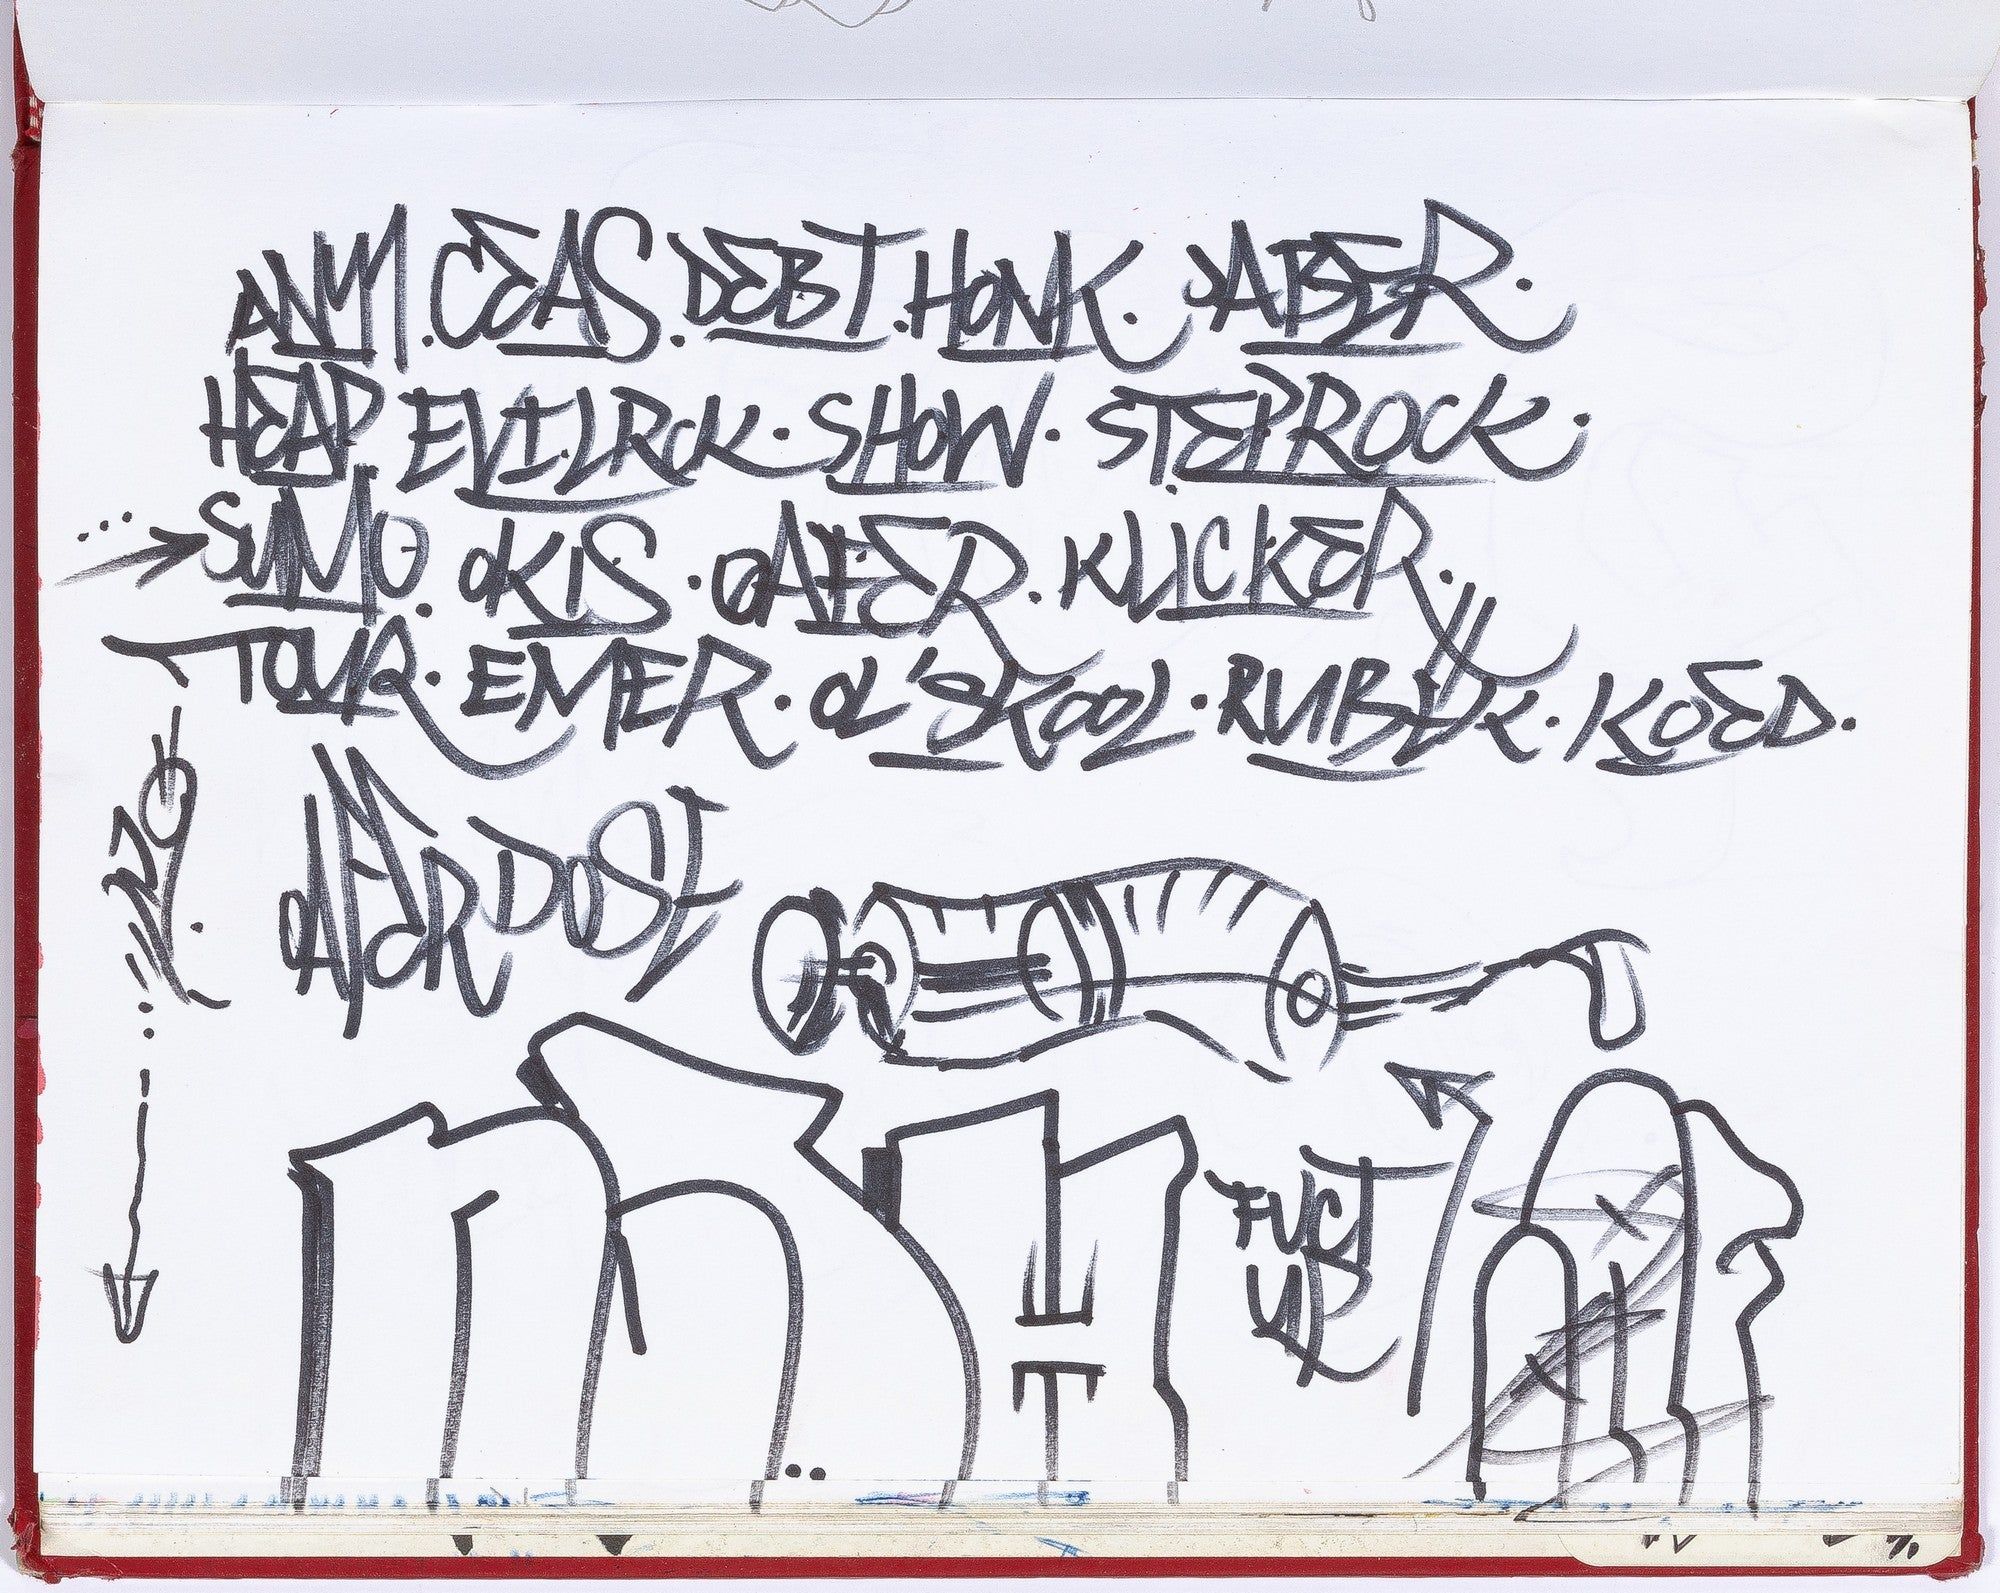 ANM. CEAS. DEBT. HONK. JABER.
HEAP EVILRCK. SHOW. STEPROCK.
SUMO. OKIS. OAFER. KLICKER.
TOUR. EMER. OL'SKOOL. RUBEK. KOED.
OAFER DOSE
FUCT
UP